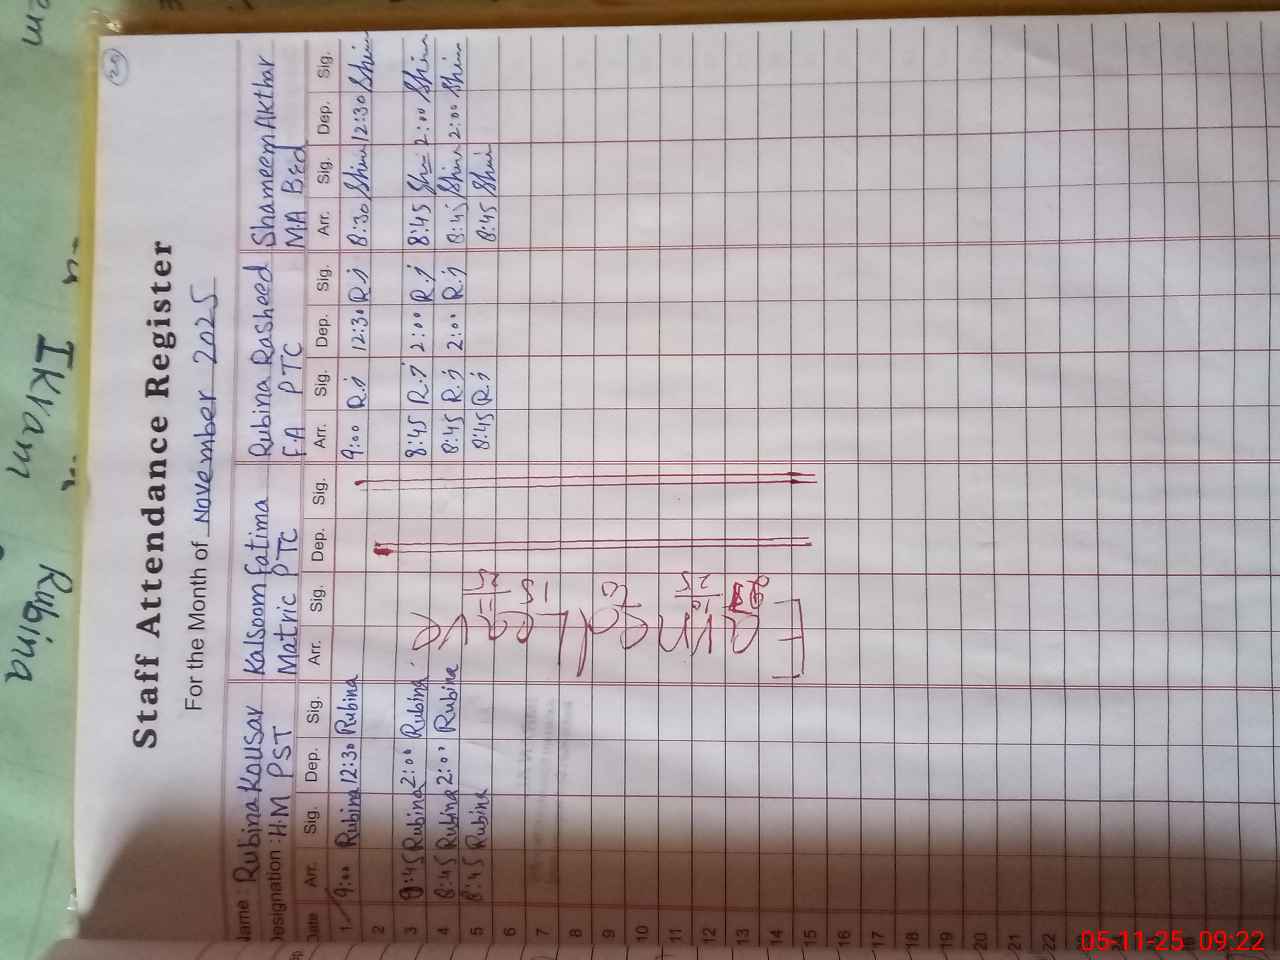 20
Staff Attendance Register
For the Month of November 2025
Name: Rubina Kousar Kalsoom Fatima Rubina Rasheed Shameem Akthar
Designation: H.M PST Matric PTC F.A PTC M.A B.ed
Date Arr. Sig. Dep. Sig. Arr. Sig. Dep. Sig. Arr. Sig. Dep. Sig. Arr. Sig. Dep. Sig.
1 9:00 Rubina 12:30 Rubina 9:00 R.j 12:30 R.j 8:30 Shim 12:30 Shim
2
3 8:45 Rubina 2:00 Rubina 8:45 R.j 2:00 R.j 8:45 Shim 2:00 Shim
4 8:45 Rubina 2:00 Rubina 8:45 R.j 2:00 R.j 8:45 Shim 2:00 Shim
5 8:45 Rubina 8:45 R.j 8:45 Shim
6
7
8
9
10
11
12
13
14
15
16
17
18
19
20
21
22
Rubina
Ikram
05-11-25 09:22